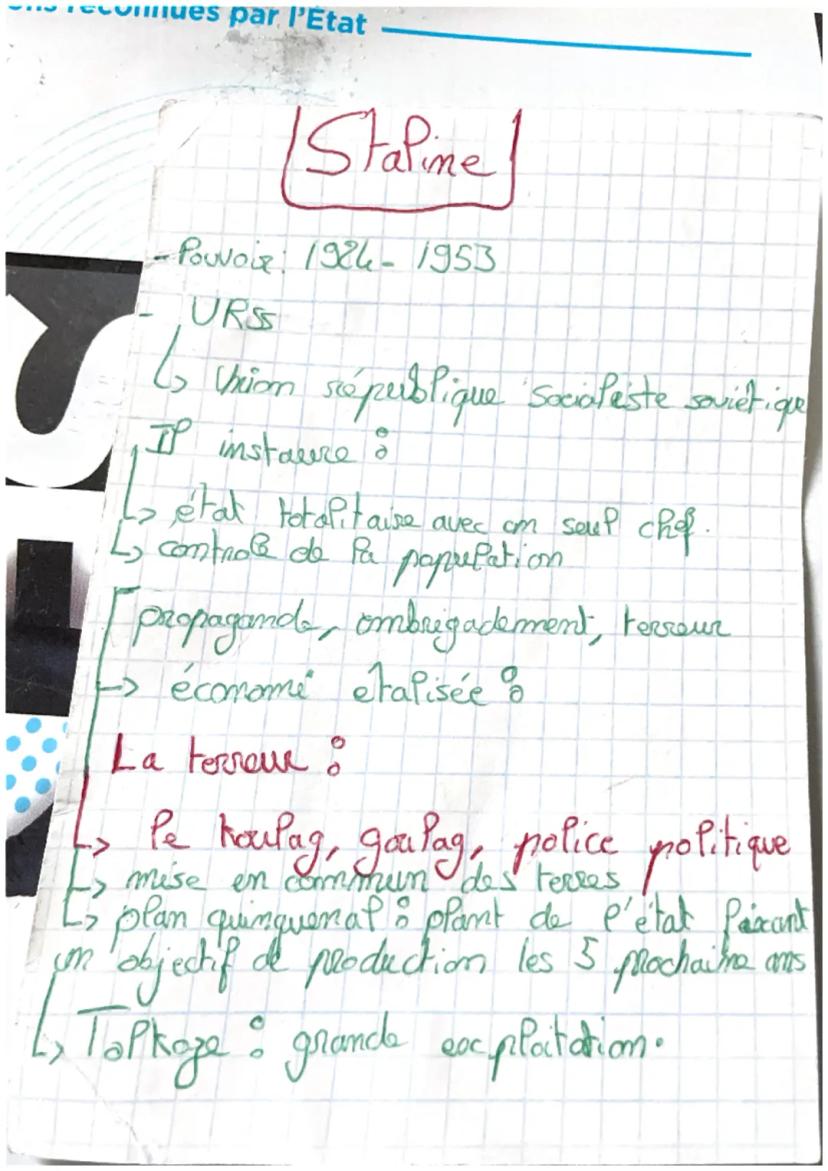 ons reconnues par l'État
Staline
- Pouvoir : 1924 - 1953
- URSS
↳ Union république socialiste soviétique
Il instaure :
↳ état totalitaire avec un seul chef.
↳ controle de la population
propagande, ombrigadement, terreur
→ économi etalisée :
La terreur :
↳ le koulag, goulag, police politique
↳ mise en commun des terres
↳ plan quinquenal : plant de l'état faixant
un objectif de production les 5 prochaine ans
↳ Tolkoze : grande excploitation.